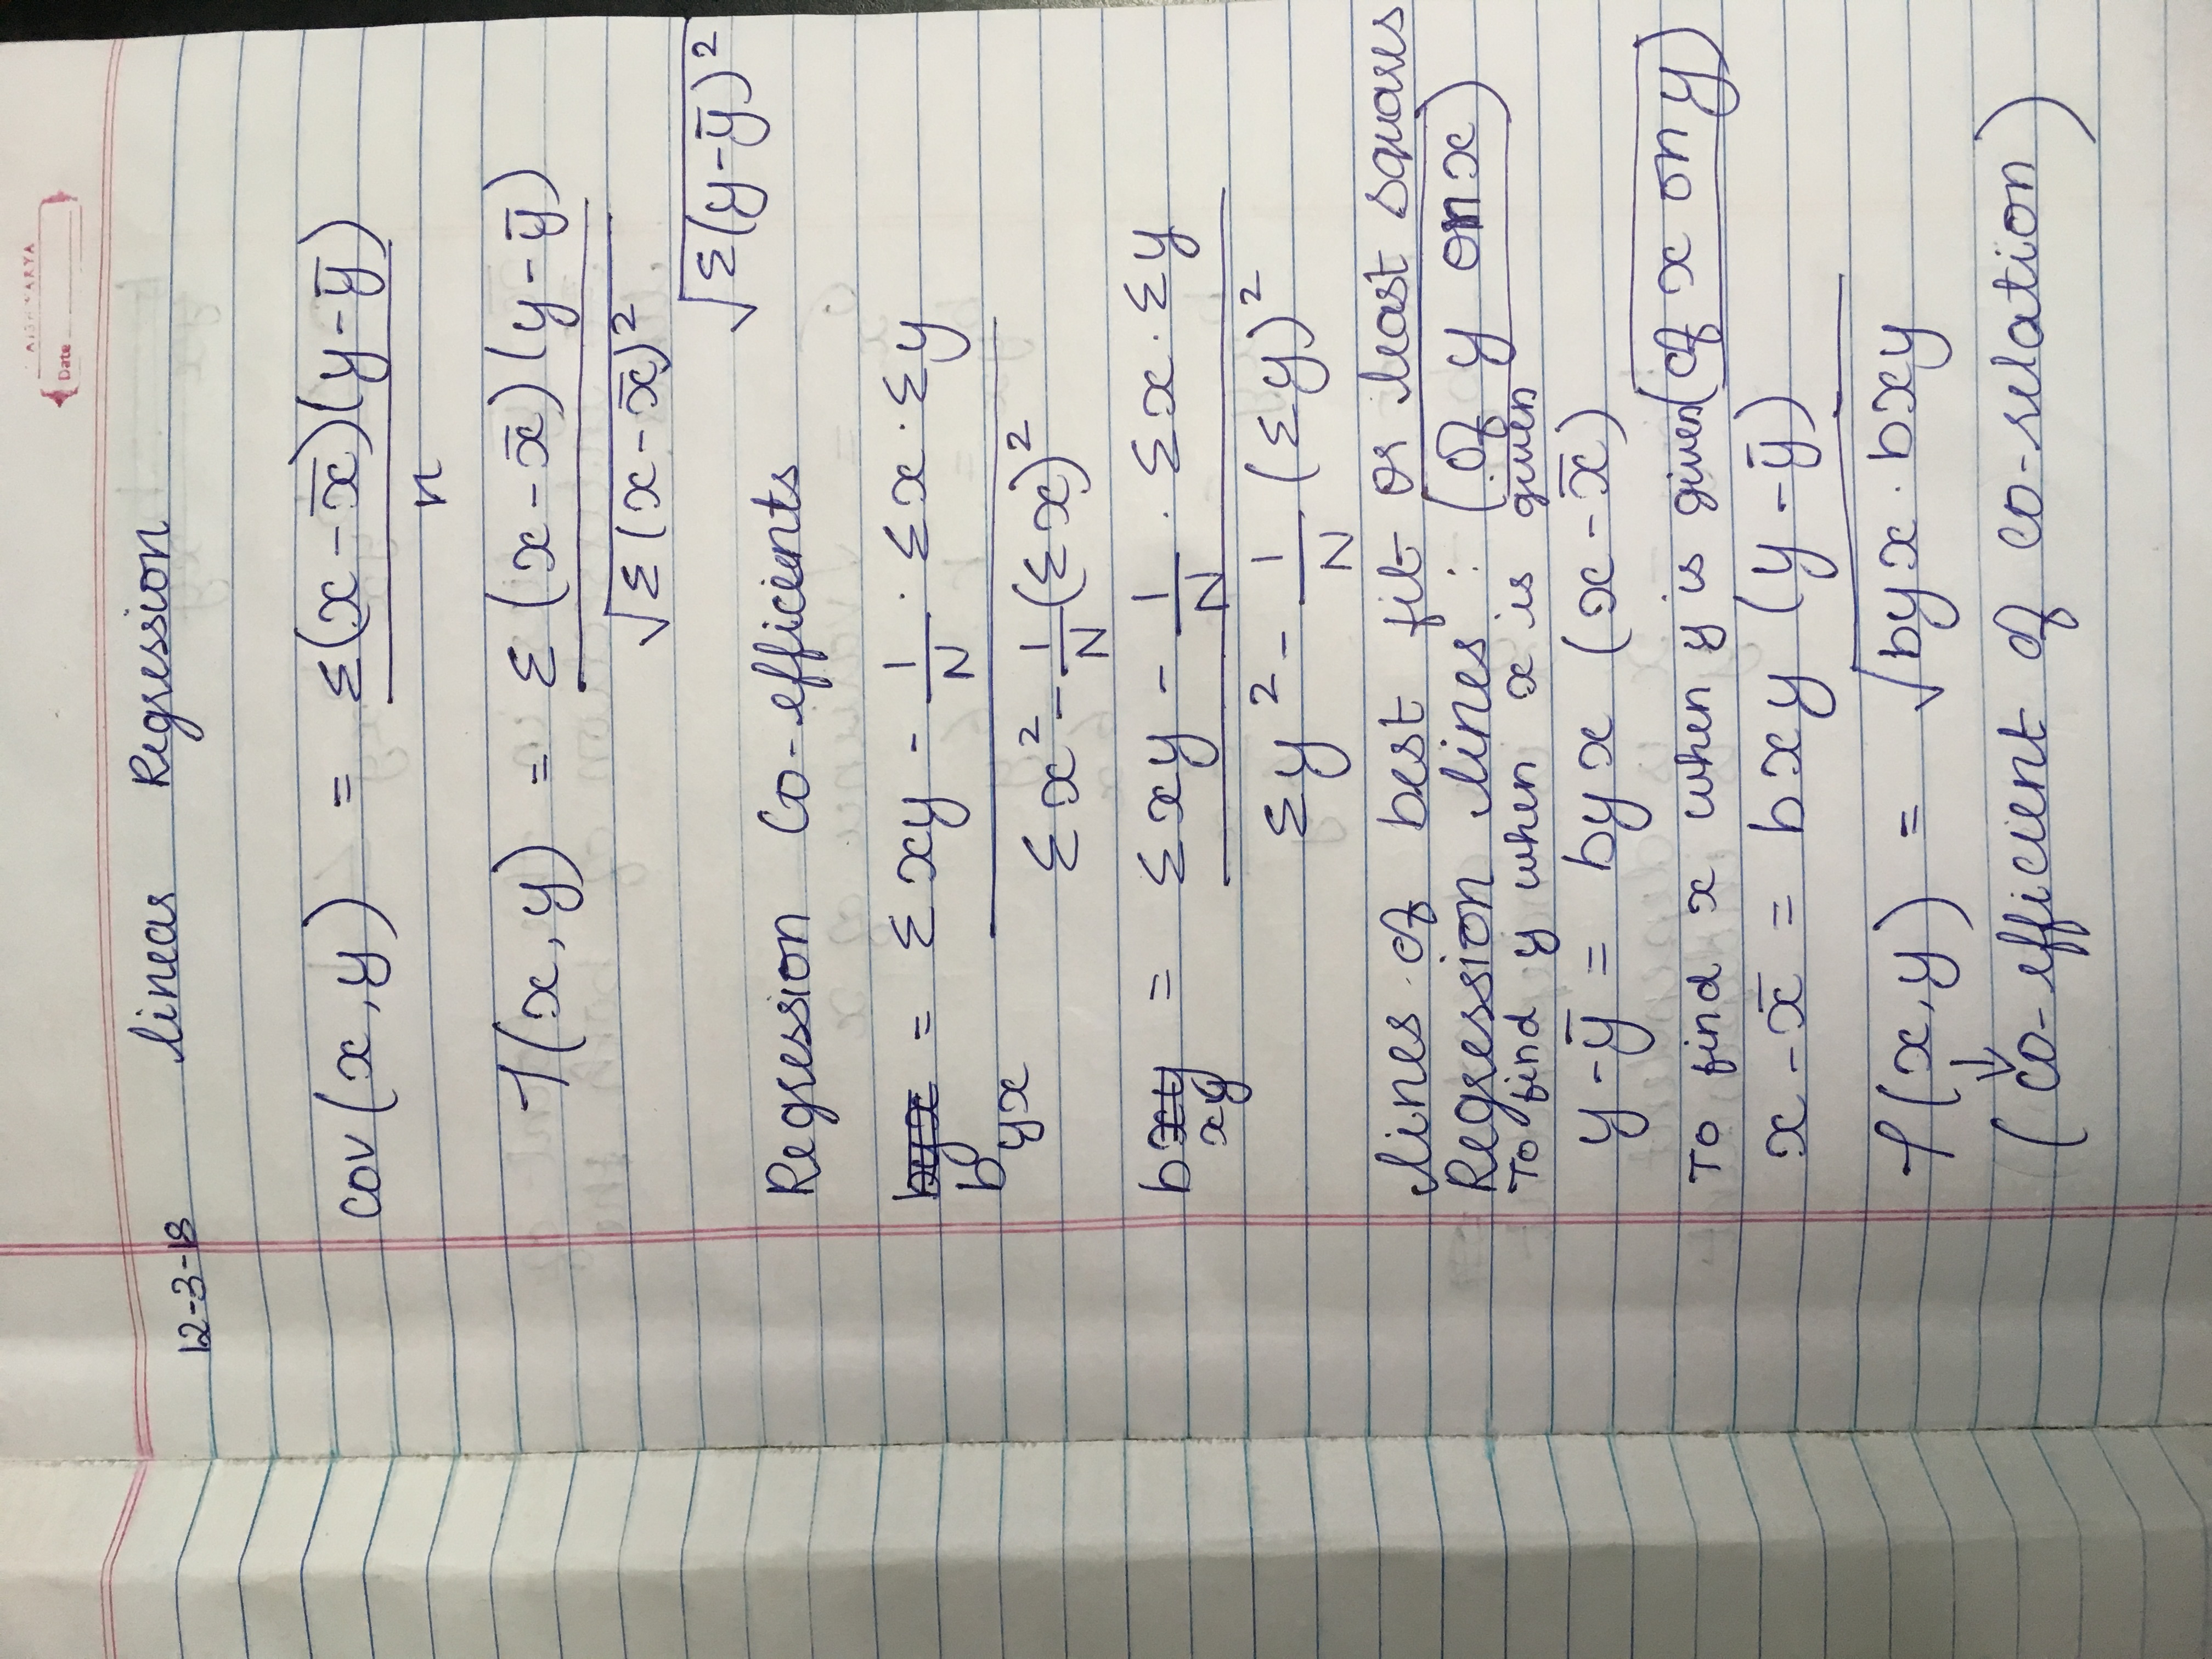 AISHWARYA
Date
12-3-18
linear Regression
cov(x,y) = Σ(x-x̄)(y-ȳ)
n
r(x,y) = Σ(x-x̄)(y-ȳ)
√Σ(x-x̄)²
√Σ(y-ȳ)²
Regression Co-efficients
byx = Σxy - 1/N · Σx·Σy
b yx
Σx² - 1/N (Σx)²
bxy = Σxy - 1/N · Σx·Σy
xy
Σy² - 1/N (Σy)²
lines of best fit or least squares
Regression lines : (of y on x)
To find y when x is given
y-ȳ = byx (x-x̄)
To find x when y is given (of x on y)
x-x̄ = bxy (y-ȳ)
r(x,y) = √byx · bxy
↓
(co-efficient of co-relation)